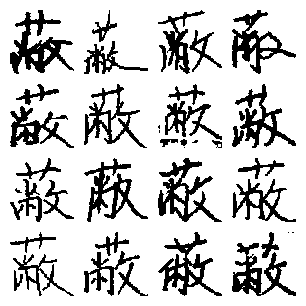 蔽蔽蔽蔽
蔽蔽蔽蔽
蔽蔽蔽蔽
蔽蔽蔽蔽